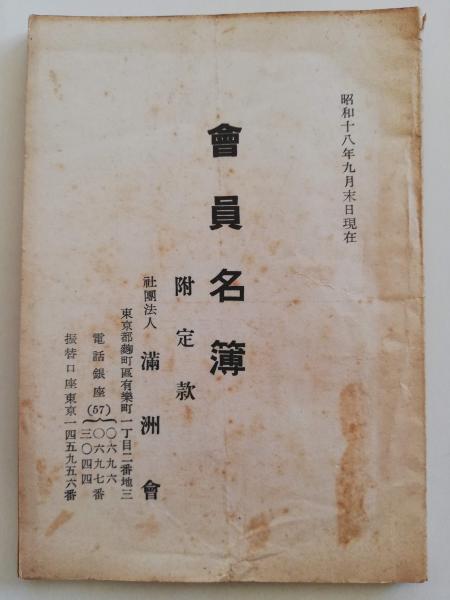 昭和十八年九月末日現在
會員名簿
附定款
社團法人 滿洲會
東京都麴町區有樂町一丁目二番地三
電話銀座(57){〇六九六
〇六九七番
三〇四四
振替口座東京一四五九五六番